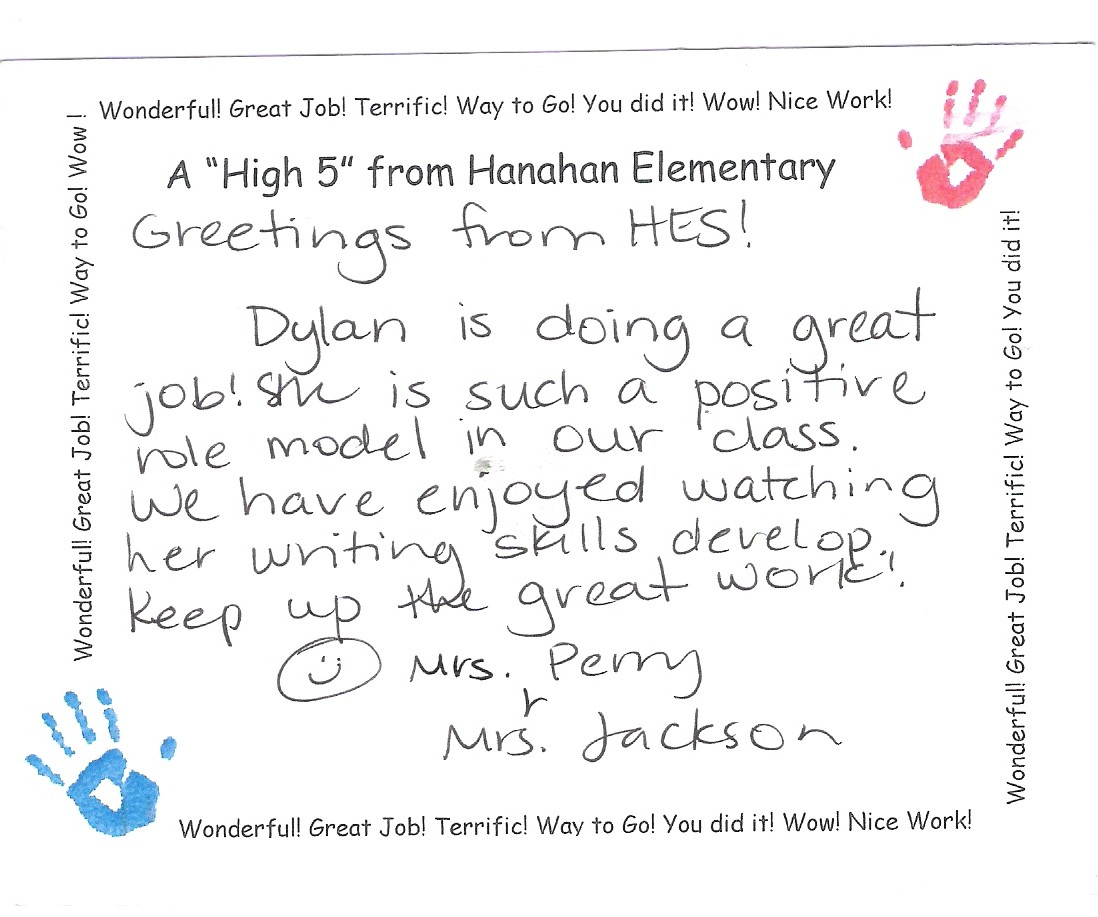 Wonderful! Great Job! Terrific! Way to Go! You did it! Wow! Nice Work!
A "High 5" from Hanahan Elementary
Greetings from HES!
Dylan is doing a great
job! She is such a positive
role model in our class.
We have enjoyed watching
her writing skills develop.
Keep up the great work!
Mrs. Perry
Mrs. Jackson
Wonderful! Great Job! Terrific! Way to Go! You did it! Wow! Nice Work!
Wonderful! Great Job! Terrific! Way to Go! Wow!
Wonderful! Great Job! Terrific! Way to Go! You did it!